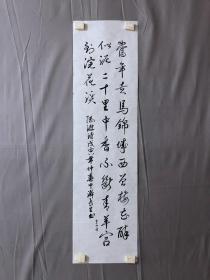 當年走馬錦城西曾為梅花醉
似泥二十里中香不斷青羊宮
到浣花溪
陸游詩戊寅年仲春